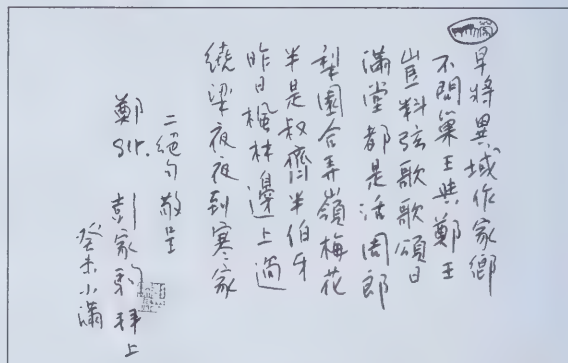 早將異域作家鄉
不問巢王與鄭王
豈料弦歌歌頌日
滿堂都是活周郎
梨園合弄嶺梅花
半是叔齊半伯牙
昨日楓林邊上過
繞梁夜夜到寒家
二絕句敬呈
鄭Sir.
彭家 拜上
癸未小滿